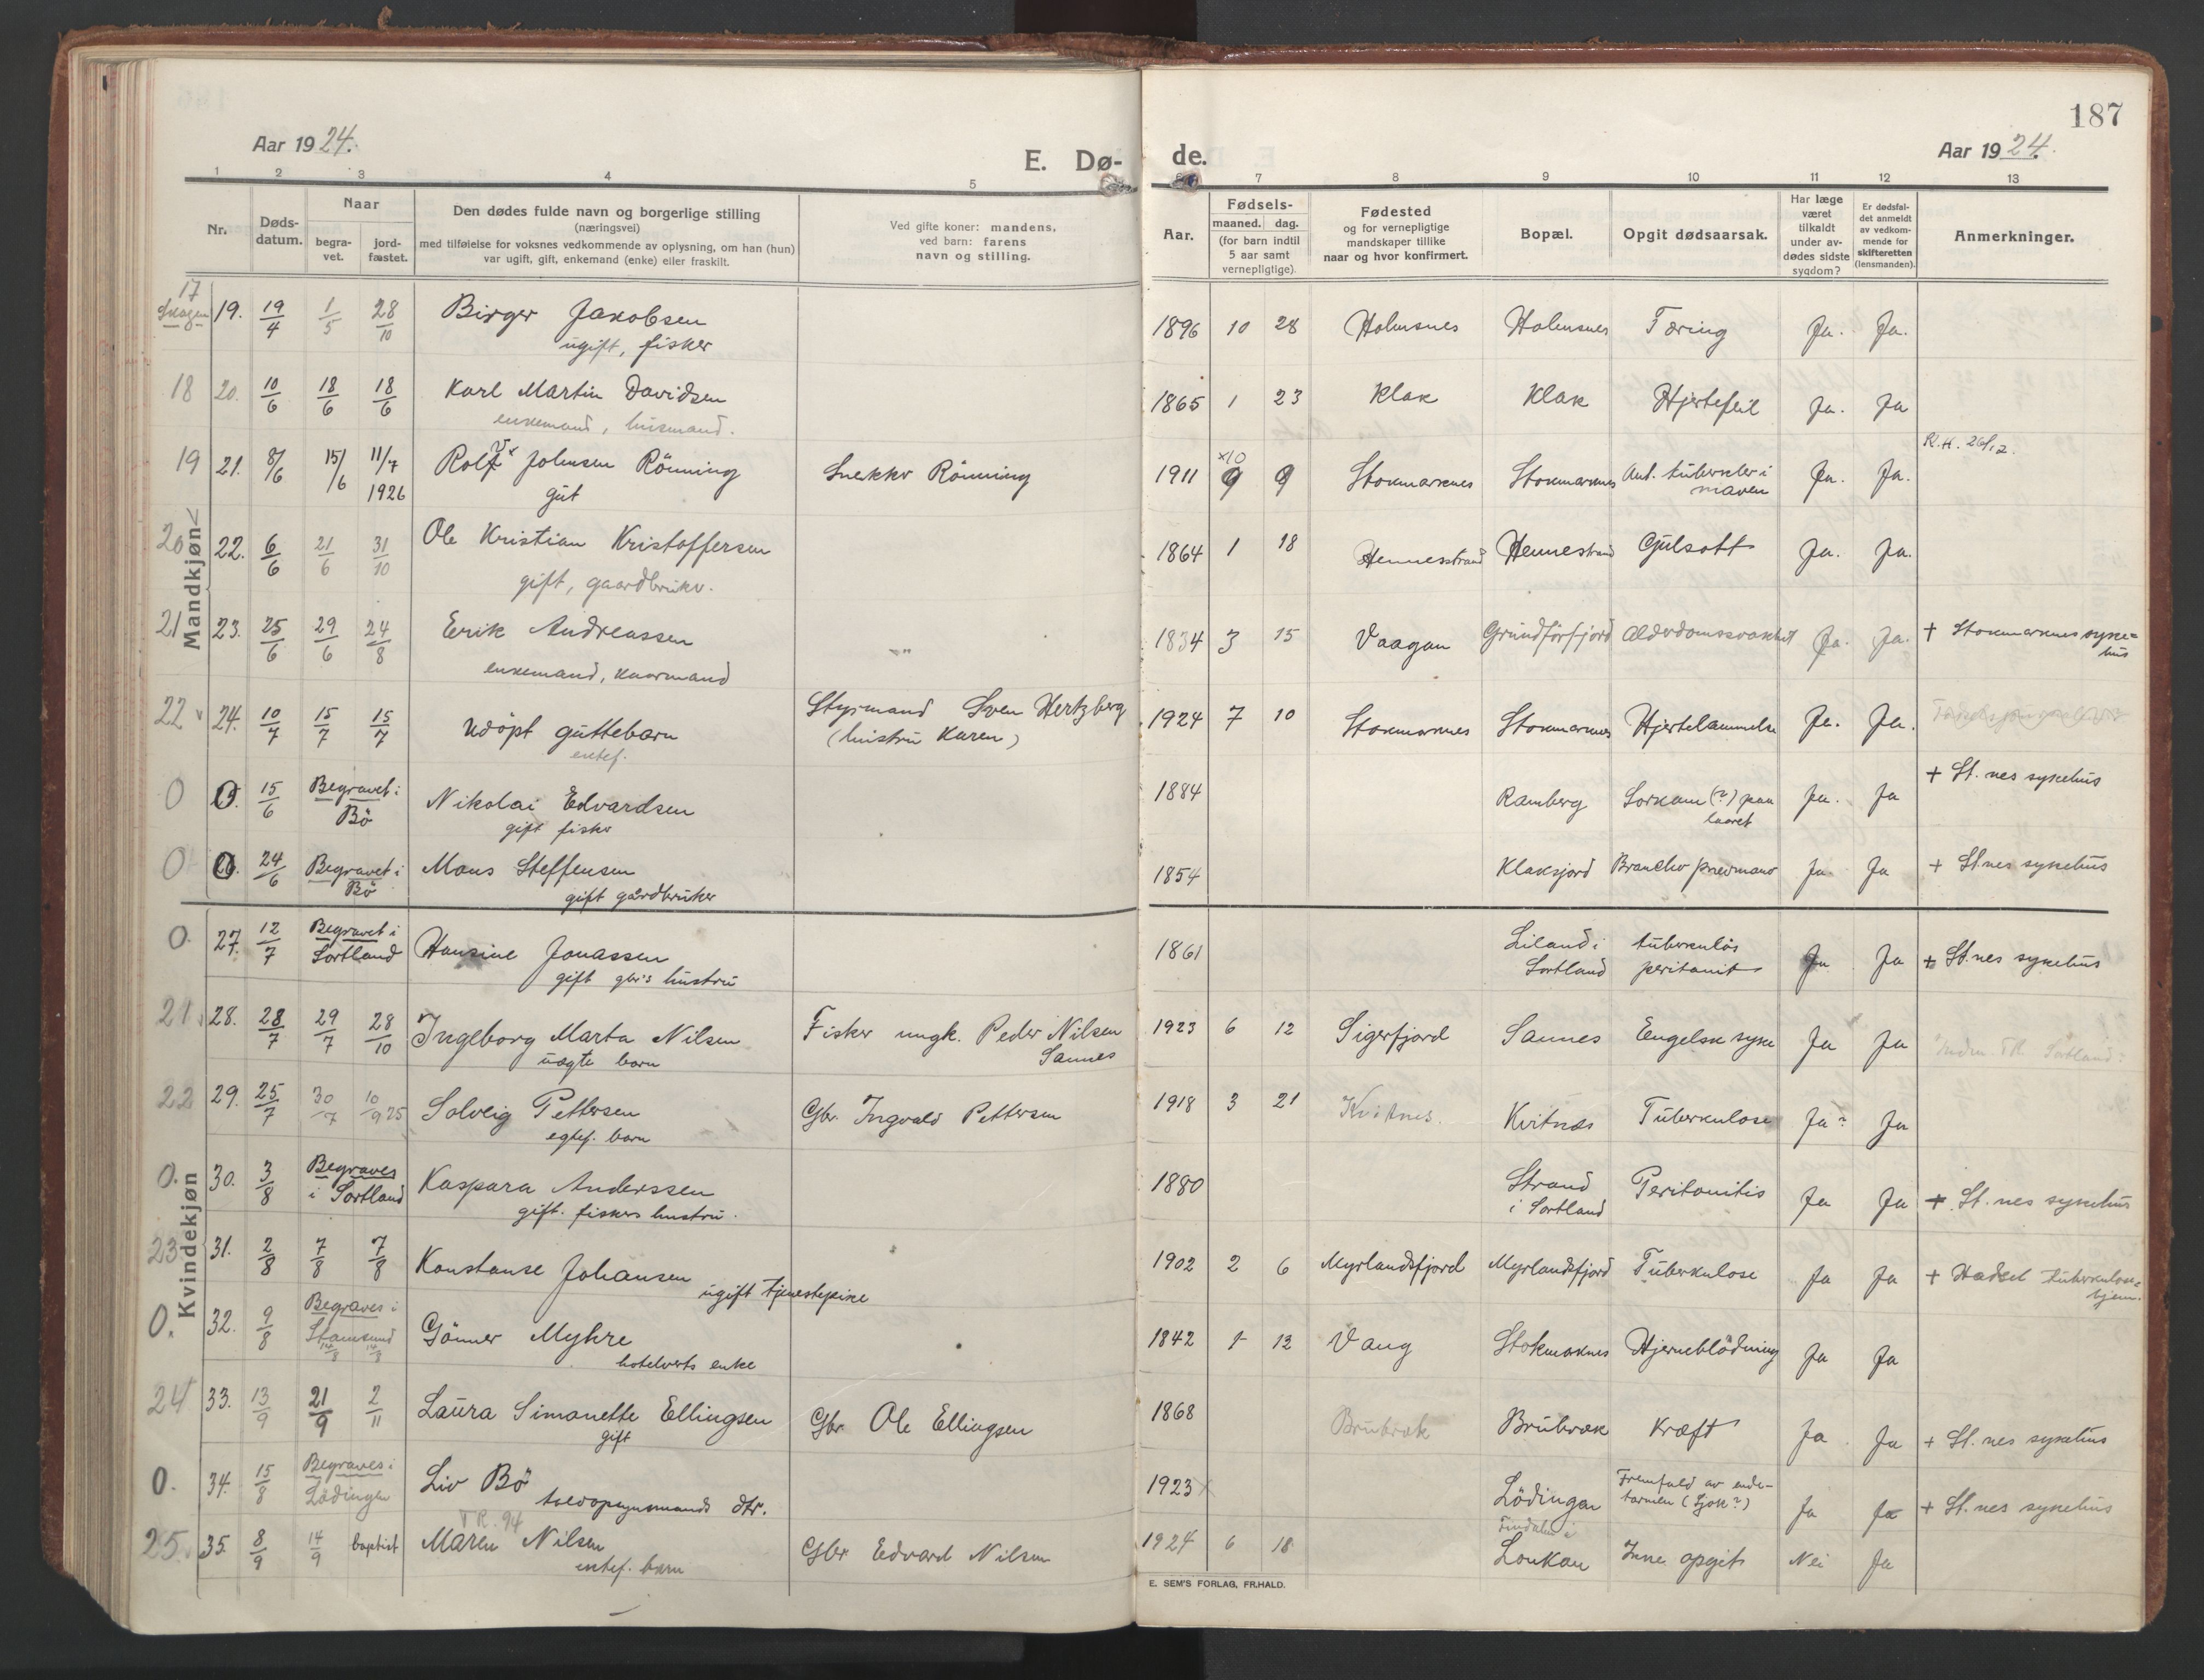 187
Aar 1924.
E. Dø-
de.
Aar 1924.
1 2 3 4 5 7 8 9 10 11 12 13
Nr.
Døds-
datum.
Naar
begra-
vet.
jord-
fæstet.
Den dødes fulde navn og borgerlige stilling
(næringsvei)
med tilføielse for voksnes vedkommende av oplysning, om han (hun)
var ugift, gift, enkemand (enke) eller fraskilt.
Ved gifte koner: mandens,
ved barn: farens
navn og stilling.
Aar.
Fødsels-
maaned. dag.
(for barn indtil
5 aar samt
vernepligtige).
Fødested
og for vernepligtige
mandskaper tillike
naar og hvor konfirmert.
Bopæl.
Opgit dødsaarsak.
Har læge
været
tilkaldt
under av-
dødes sidste
sygdom?
Er dødsfal-
det anmeldt
av vedkom-
mende for
skifteretten
(lensmanden).
Anmerkninger.
Mandkjøn
17
Skogen 19. 19/4 1/5 28/10 Birger Jakobsen 1896 10 28 Holmsnes Holmsnes Tæring Ja. Ja.
ugift, fisker
18 20. 10/6 18/6 18/6 Karl Martin Davidsen 1865 1 23 Klak Klak Hjertefeil Ja. Ja
enkemand, husmand.
R.H. 26/12.
19 21. 8/6 15/6 11/7 Rolf Johnsen Rönning Snekker Rönning 1911 x10 9 9 Stokmarknes Stokmarknes Ant. tuberkler i Ja. Ja.
1926 gut maven
20 22. 6/6 21/6 31/10 Ole Kristian Kristoffersen 1864 1 18 Hennesstrand Hennestrand Gulsott Ja. Ja.
gift, gaardbruker.
21 23. 25/6 29/6 24/8 Erik Andreassen 1834 3 15 Vaagan Grundförfjord Alderdomssvakhet Ja. Ja. + Stokmarknes syke=
hus
enkemand, kaarmand
22 24. 10/7 15/7 15/7 Udöpt guttebarn Styrmand Sven Hertzberg 1924 7 10 Stokmarknes Stokmarknes Hjertelammelse Ja. Ja.
ektef. (hustru Karen)
0 25. 15/6 Begravet i Nikolai Edvardsen 1884 Ramberg Sarkom (?) paa Ja. Ja + St. nes sykehus
Bö gift fisker laaret
0 26. 24/6 Begravet i Mons Steffensen 1854 Klaksjord Broncho pneumoni Ja. Ja + St.nes sykehus
Bö gift gårdbruker
Kvindekjøn
0. 27. 12/7 Begravet i Hansine Jonassen 1861 Liland i tuberkuløs Ja Ja + St.nes sykehus
Sortland gift gbr's hustru Sortland peritonit
21 28. 28/7 29/7 28/10 Ingeborg Marta Nilsen Fisker ungk. Peder Nilsen 1923 6 12 Sigerfjord Sannes Engelsk syke Ja Ja
uægte barn Sannes
22 29. 25/7 30/7 10/9 25 Solveig Pettersen Gbr. Ingvald Pettersen 1918 3 21 Kvitnes. Kvitnes Tuberkulose Ja? Ja
egtef. barn
0. 30. 3/8 Begraves Kaspara Anderssen 1880 Strand Peritonitis Ja Ja + St. nes sykehus
i Sortland gift. fiskers hustru. i Sortland
23 31. 2/8 7/8 7/8 Konstanse Johansen 1902 2 6 Myrlandsfjord Myrlandsfjord Tuberkulose Ja Ja + Hadsel tuberkulose=
hjem.
ugift tjenestepike
0. 32. 9/8 Begraves i Gönner Myhre 1842 1 13 Vang Stokmaknes Hjerneblödning Ja Ja
Stamsund 14/8 14/8 hotelverts enke
24 33. 13/9 21/9 2/11 Laura Simonette Ellingsen Gbr. Ole Ellingsen 1868 Brubræk Brubræk Kræft Ja Ja + St. nes sykehus
gift
0. 34. 15/8 Begraves i Liv Bö 1923 Lödingen Fremfald av ende- Ja Ja + St. nes sykehus
Lödingen dtr. tarmen (Sjok?)
TR. 94
25. 35. 8/9 14/9 baptist Maren Nilsen Gbr Edvard Nilsen 1924 6 18 Lonkan Ikke opgit Nei Ja
ektef. barn
E. SEM'S FORLAG, FR.HALD.